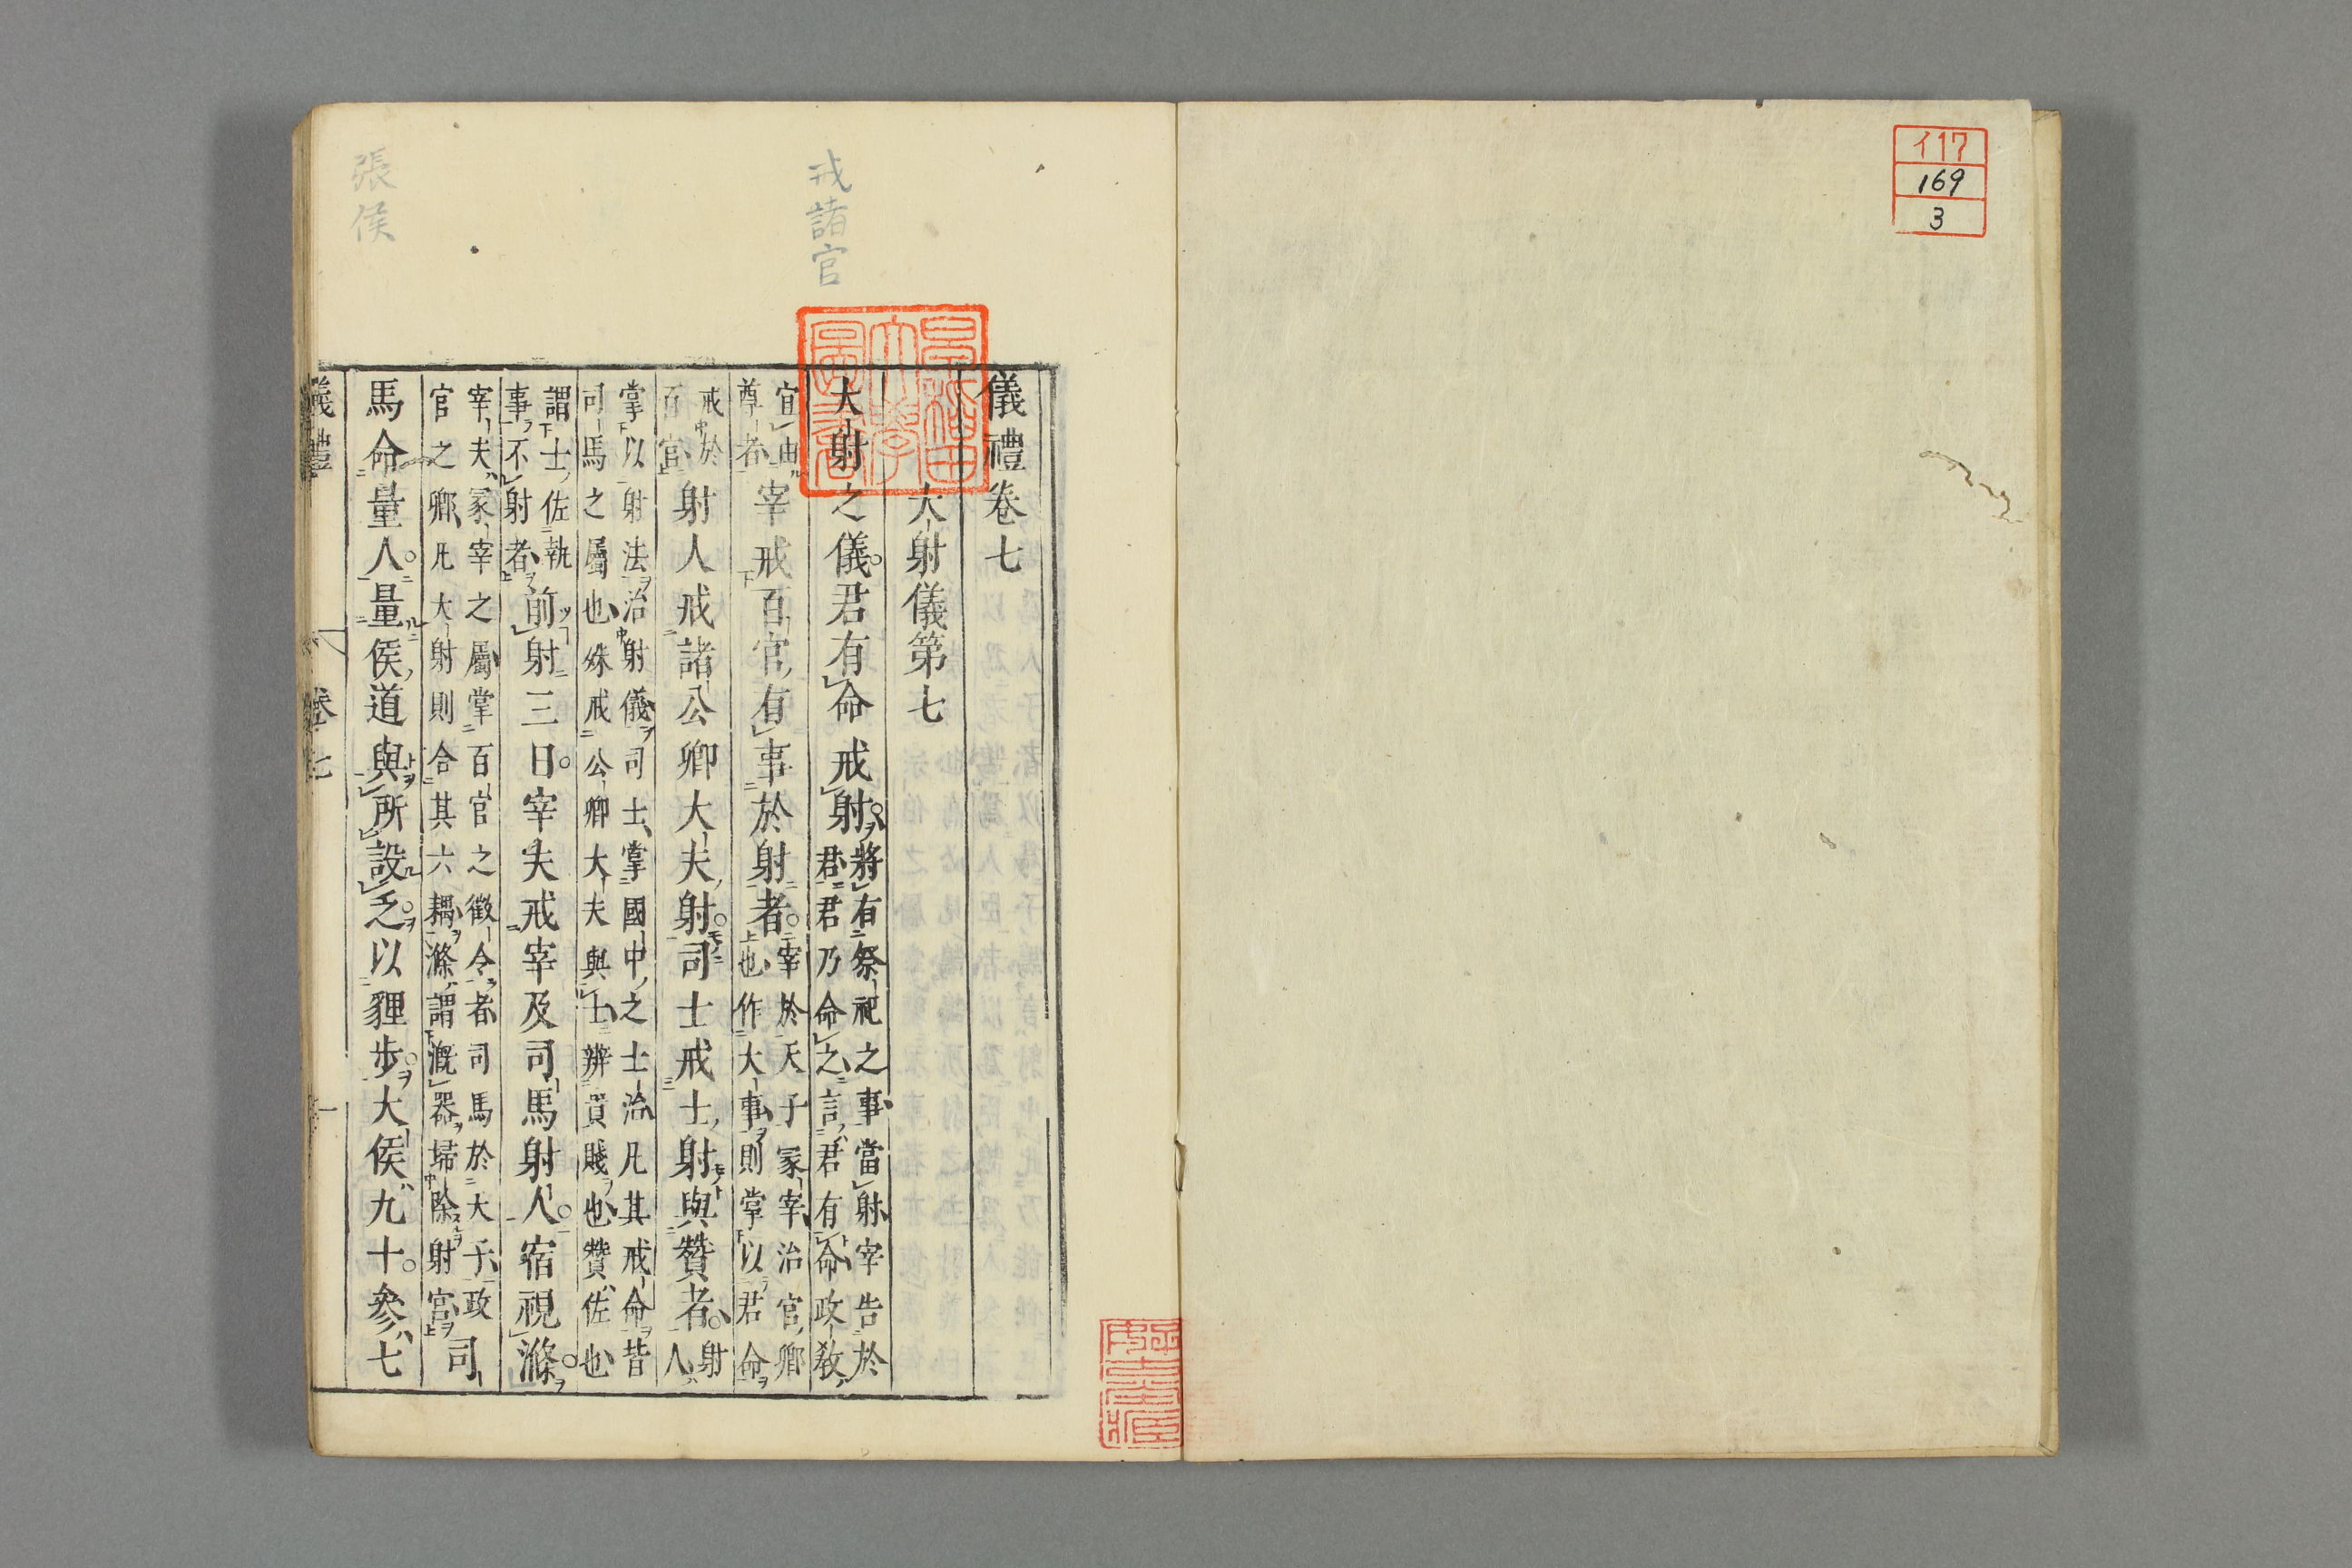 イ17
169
3
儀禮卷七
大射儀第七
大射之儀君有命戒射
將有祭祀之事當射宰告於
君君乃命之言君有命政教
宜由
尊者
宰戒百官有事於射者
宰於天子冢宰治官卿
也作大事則掌以君命
戒於
百官
射人戒諸公卿大夫射司士戒士射與贊者
射
人
掌以射法治射儀司士掌國中之士治凡其戒命皆
司馬之屬也殊戒公卿大夫與士辨貴賤也贊佐也
謂士佐執
事不射者
前射三日宰夫戒宰及司馬射人宿視滌
宰夫冢宰之屬掌百官之徵令者司馬於天子政
官之卿凡大射則合其六耦滌謂漑器埽除射宮
司
馬命量人量侯道與所設乏以貍步大侯九十參七
儀禮 卷七 一
戒諸官
張侯
早稲田大學圖書